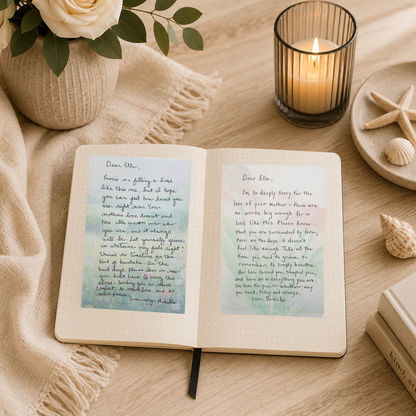 Dear Elle,
There's no filling a loss
like this one, but I hope
you can feel how loved you
are right now. Your
mother's love doesn't end
you are, and it always
will be. Let yourself grieve
in whatever way feels right.
There's no timeline for this
kind of heartache. On the
hard days, please know
you don't have to carry this
alone. Sending you so much
comfort, so much love, and
Dear Elle,
I'm so deeply sorry for the
loss of your mother – there are
no words big enough for a
loss like this. Please know
that you are surrounded by love,
even on the days it doesn't
feel like enough. Take all the
time you need to grieve, to
remember, to simply breathe.
Her love raised you, shaped you,
and lives on in everything you are.
I'm here for you, in whatever way
you need, today and always.
Love,
kind